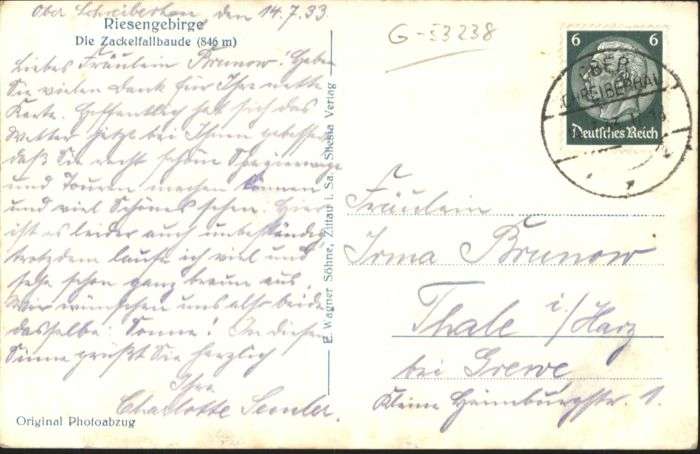 Ober Schreiberhau den 14.7.33
Riesengebirge
Die Zackelfallbaude (846 m)
Liebes Fräulein Brunow! Haben
Sie vielen Dank für Ihre nette
Karte. Hoffentlich hat sich das
Wetter jetzt bei Ihnen gebessert
daß Sie recht schöne Spaziergänge
und Touren machen können
und viel Schönes sehen. Hier
ist es leider auch unbeständig
trotzdem laufe ich viel und
sehe schon ganz braun aus.
Wir wünschen uns also beide
dasselbe: Sonne! In diesem
Sinne grüßt Sie herzlich
Ihre
Charlotte
Original Photoabzug
E. Wagner Söhne, Zittau i. Sa. / Silesia Verlag
G-53238
6 6
Deutsches Reich
OBER
SCHREIBERHAU
Fräulein
Irma Brunow
Thale i/Harz
bei Grewe
Kleine Heimburgstr. 1.